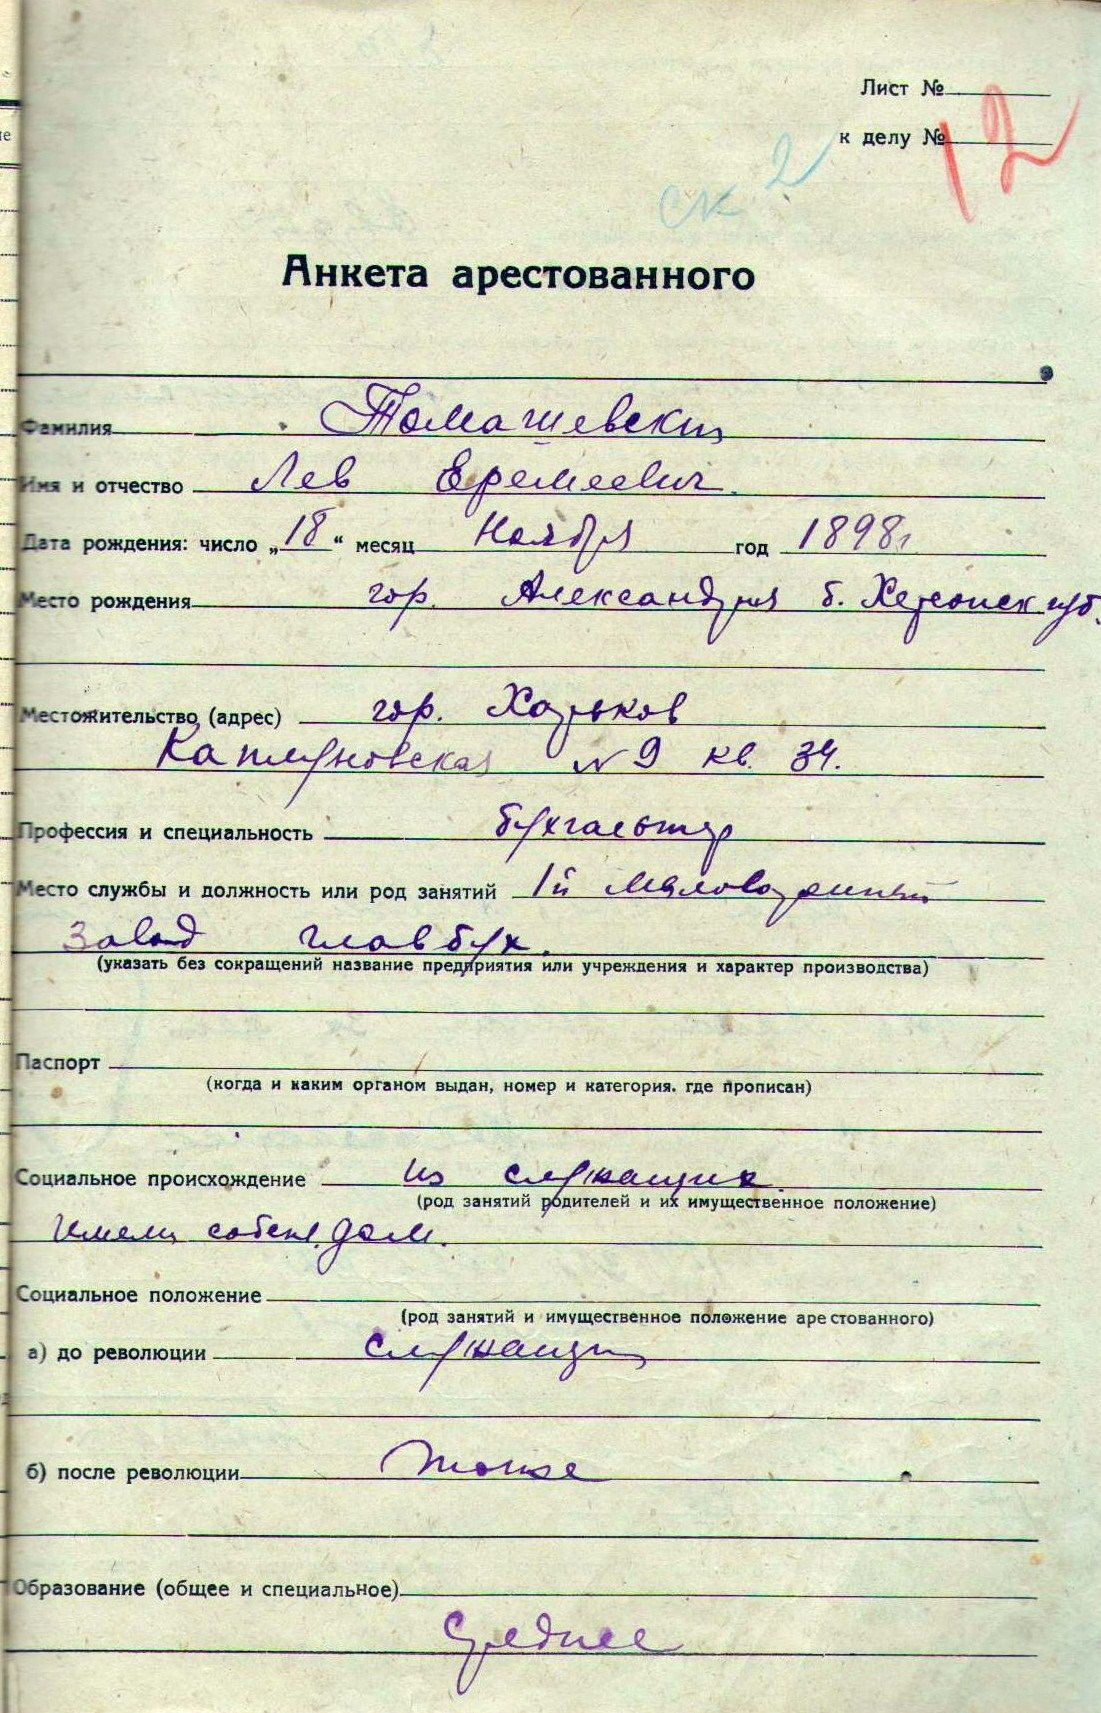 Лист №
к делу №
12
ск 2
Анкета арестованного
Фамилия Томашевский
Имя и отчество Лев Еремеевич.
Дата рождения: число „18“ месяц Ноября год 1898 г.
Место рождения гор. Александрия б. Херсонск губ.
Местожительство (адрес) гор. Харьков
№ 9 кв. 34.
Профессия и специальность бухгалтер
Место службы и должность или род занятий 1й Мыловаренный
Завод главбух.
(указать без сокращений название предприятия или учреждения и характер производства)
Паспорт
(когда и каким органом выдан, номер и категория. где прописан)
Социальное происхождение из служащих
(род занятий родителей и их имущественное положение)
Имели собств. дом.
Социальное положение
(род занятий и имущественное положение арестованного)
а) до революции служащий
б) после революции тоже
Образование (общее и специальное)
Среднее